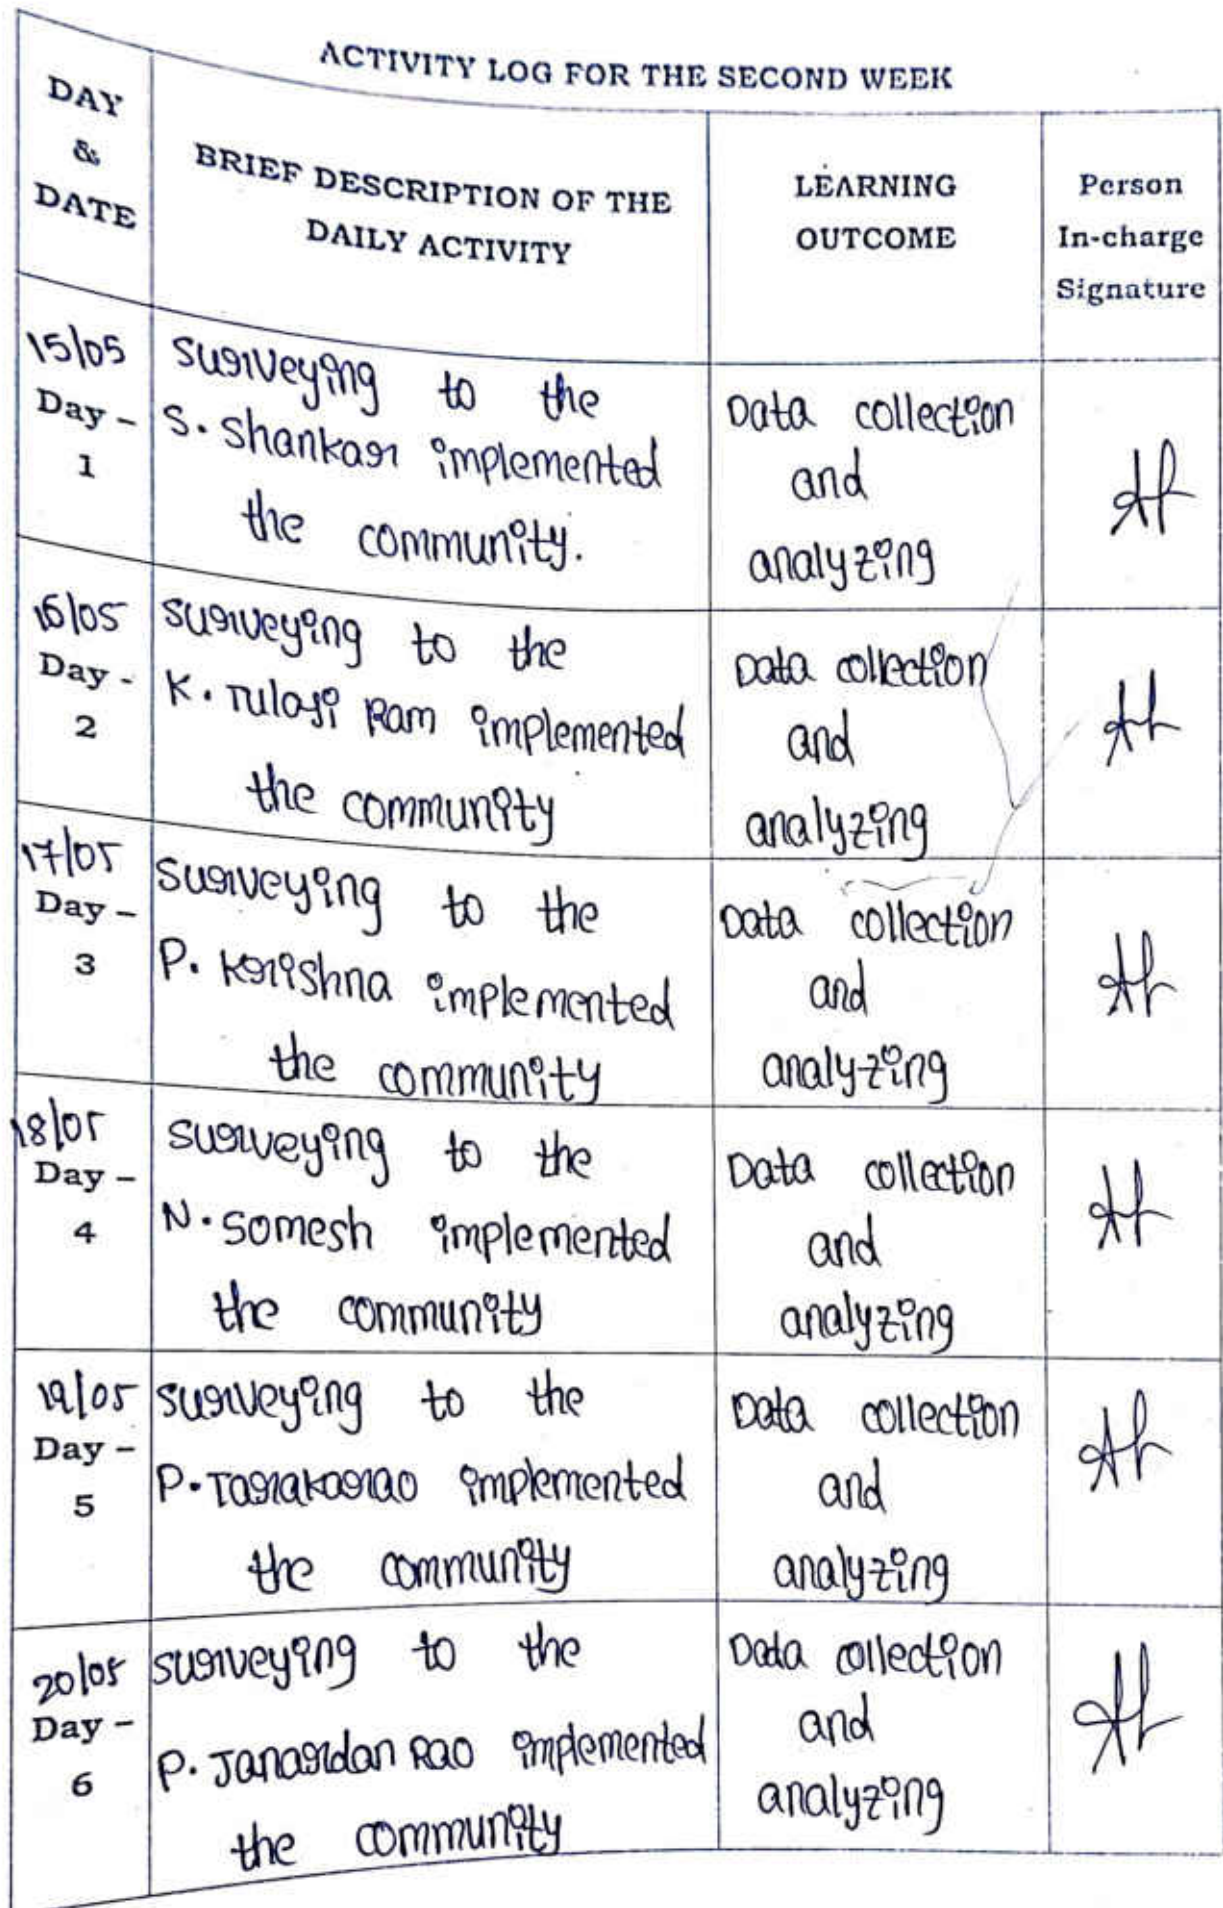 ACTIVITY LOG FOR THE SECOND WEEK
DAY
&
DATE
BRIEF DESCRIPTION OF THE
DAILY ACTIVITY
LEARNING
OUTCOME
Person
In-charge
Signature
15/05
Day -
1
surveying to the
S. Shankar implemented
the community.
Data collection
and
analyzing
16/05
Day -
2
surveying to the
K. Tulasi Ram implemented
the community
Data collection
and
analyzing
17/05
Day -
3
surveying to the
P. Krishna implemented
the community
Data collection
and
analyzing
18/05
Day -
4
surveying to the
N. Somesh implemented
the community
Data collection
and
analyzing
19/05
Day -
5
surveying to the
P. Tarakarao implemented
the community
Data collection
and
analyzing
20/05
Day -
6
surveying to the
P. Janardan Rao implemented
the community
Data collection
and
analyzing